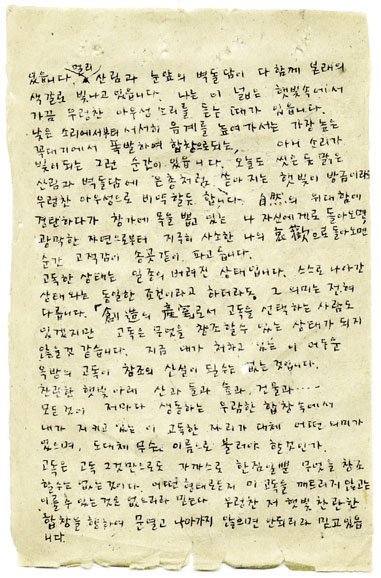 있습니다. 멀리 산림과 눈앞의 벽돌담이 다 함께 본래의
색갈로 빛나고 있읍니다. 나는 이 넓는 햇빛속에서
가끔 우렁찬 아우성 소리를 듣는 때가 있읍니다.
낮은 소리에서부터 서서히 음계를 높여가서는 가장 높은
꼭대기에서 폭발하여 합창으로되는, 아니 소리가
빛이되는 그런 순간이 있읍니다. 오늘도 씻은듯 맑은
산림과 벽돌담에 은총처럼 쏟아지는 햇빛이 방금이라도
우렁찬 아우성으로 비약할듯 합니다. 自然의 위대함에
경탄하다가 창가에 목을 뽑고 있는 나 자신에게로 돌아오면
광막한 자연으로부터 지극히 사소한 나의 으로 돌아오면
순간 고적감이 송곳같이 파고듭니다.
고독한 상태는 일종의 버려진 상태입니다. 스스로 나아간
상태와는 동일한 조건이라고 하더라도 그 의미는 전혀
다릅니다. 「創造의 産室」로서 고독을 선택하는 사람도
있겠지만 고독은 무엇을 창조할수 있는 상태가 되지
않을것 같습니다. 지금 내가 처하고 있는 이 어두운
옥방의 고독이 창조의 산실이 될수는 없는것입니다.
찬란한 햇빛 아래 산과 들과 숲과, 건물과……
모든것이 저마다 생동하는 우람한 합창속에서
내가 지키고 있는 이 고독한 자리가 대체 어떤 의미가
있으며, 도대체 무슨 이름으로 불러야 할것인가.
고독은 고독 그것만으로도 가까스로 한짐일뿐 무엇을 창조
할수는 없는것이다. 어떤 형태로든지 이 고독을 깨트리지 않고는
이룰수 있는것은 없느니라 믿는다 우렁찬 저 햇빛 찬란한
합창을 향하여 문열고 나아가지 않으면 안되리라 믿고 있읍
니다.